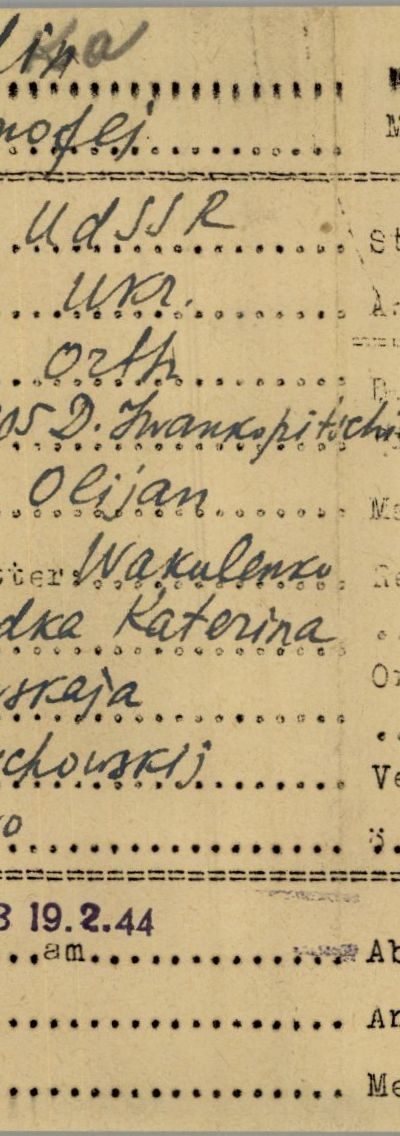 M
UdSSR St
Ukr.
Orth
05 D. Iwankopitschi
Olijan Me
tter: Wakulenko Re
dka Katerina
skaja Or
chowskij
Ve
o
19.2.44
am Ab
An
Me